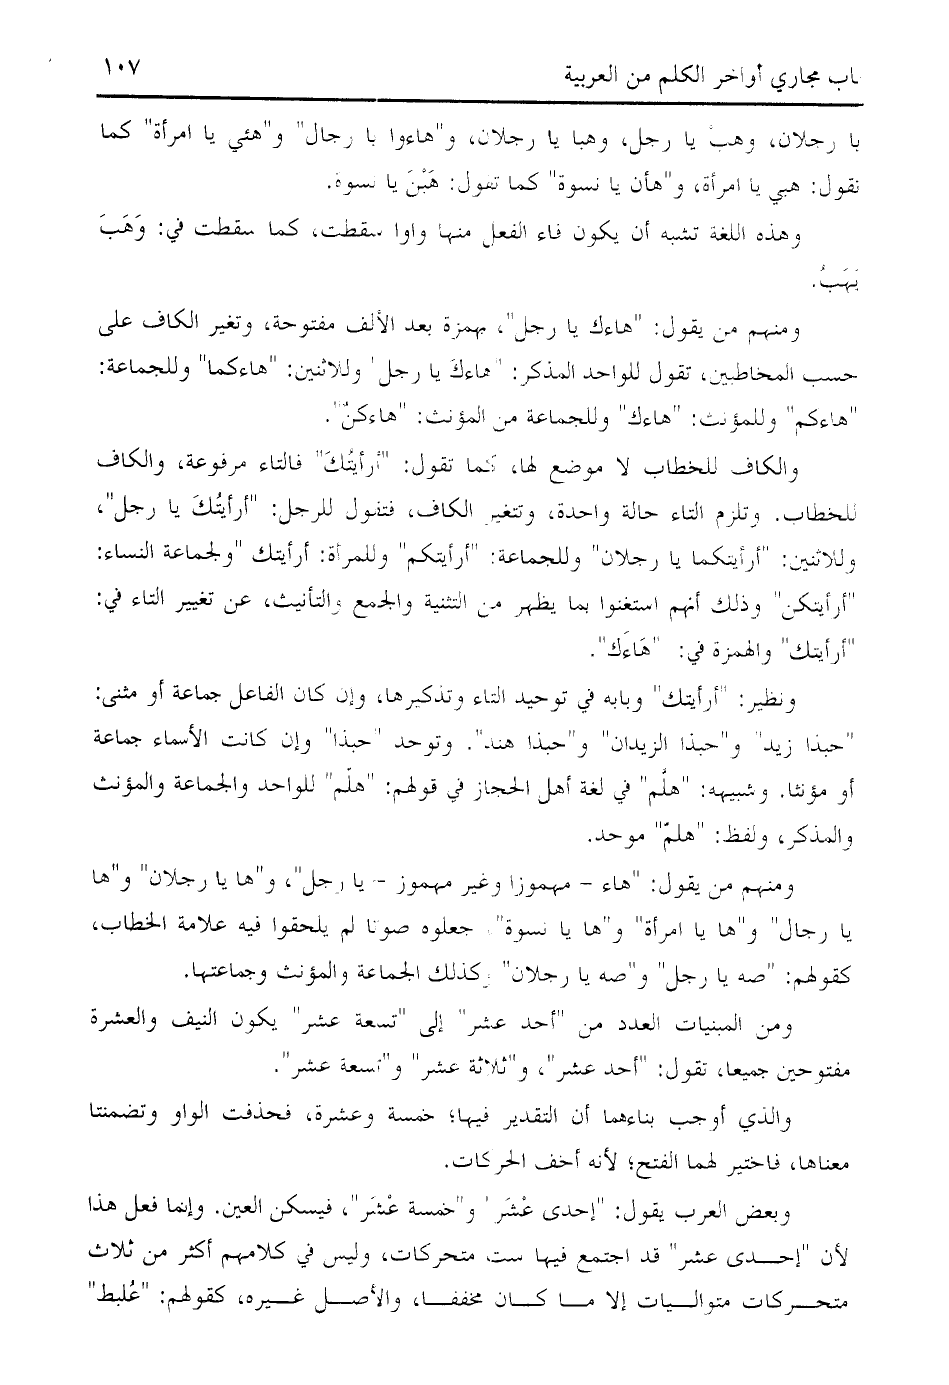 باب مجاري أواخر الكلم من العربية ١٠٧
يا رجلان، وهب يا رجل، وهبا يا رجلان، و"هاءوا يا رجال" و"هئي يا امرأة" كما
تقول: هبي يا امرأة، و"هأن يا نسوة" كما تقول: هَبْنَ يا نسوة.
وهذه اللغة تشبه أن يكون فاء الفعل منها واوا سقطت، كما سقطت في: وَهَبَ
يَهَبُ.
ومنهم من يقول: "هاءك يا رجل"، بهمزة بعد الألف مفتوحة، وتغير الكاف على
حسب المخاطبين، تقول للواحد المذكر: "هاءكَ يا رجل" وللاثنين: "هاءكما" وللجماعة:
"هاءكم" وللمؤنث: "هاءك" وللجماعة من المؤنث: "هاءكنّ".
والكاف للخطاب لا موضع لها، كما تقول: "أرأيتُكَ" فالتاء مرفوعة، والكاف
للخطاب. وتلزم التاء حالة واحدة، وتتغير الكاف، فتقول للرجل: "أرأيتُكَ يا رجل"،
وللاثنين: "أرأيتكما يا رجلان" وللجماعة: "أرأيتكم" وللمرأة: أرأيتك "ولجماعة النساء:
"أرأيتكن" وذلك أنهم استغنوا بما يظهر من التثنية والجمع والتأنيث، عن تغيير التاء في:
"أرأيتك" والهمزة في: "هَاءَك".
ونظير: "أرأيتك" وبابه في توحيد التاء وتذكيرها، وإن كان الفاعل جماعة أو مثنى:
"حبذا زيد" و"حبذا الزيدان" و"حبذا هند". وتوحد "حبذا" وإن كانت الأسماء جماعة
أو مؤنثا. وشبيهه: "هلُمَّ" في لغة أهل الحجاز في قولهم: "هلّم" للواحد والجماعة والمؤنث
والمذكر، ولفظ: "هلمّ" موحد.
ومنهم من يقول: "هاء - مهموزا وغير مهموز - يا رجل"، و"ها يا رجلان" و"ها
يا رجال" و"ها يا امرأة" و"ها يا نسوة". جعلوه صوتا لم يلحقوا فيه علامة الخطاب،
كقولهم: "صه يا رجل" و"صه يا رجلان" وكذلك الجماعة والمؤنث وجماعتها.
ومن المبنيات العدد من "أحد عشر" إلى "تسعة عشر" يكون النيف والعشرة
مفتوحين جميعا، تقول: "أحد عشر"، و"ثلاثة عشر" و"تسعة عشر".
والذي أوجب بناءهما أن التقدير فيها؛ خمسة وعشرة، فحذفت الواو وتضمنتا
معناها، فاختير لهما الفتح؛ لأنه أخف الحركات.
وبعض العرب يقول: "إحدى عْشَر" و"خمسة عْشَر"، فيسكن العين. وإنما فعل هذا
لأن "إحدى عشر" قد اجتمع فيها ست متحركات، وليس في كلامهم أكثر من ثلاث
متحركات متواليات إلا ما كان مخففا، والأصل غيره، كقولهم: "عُلبط"